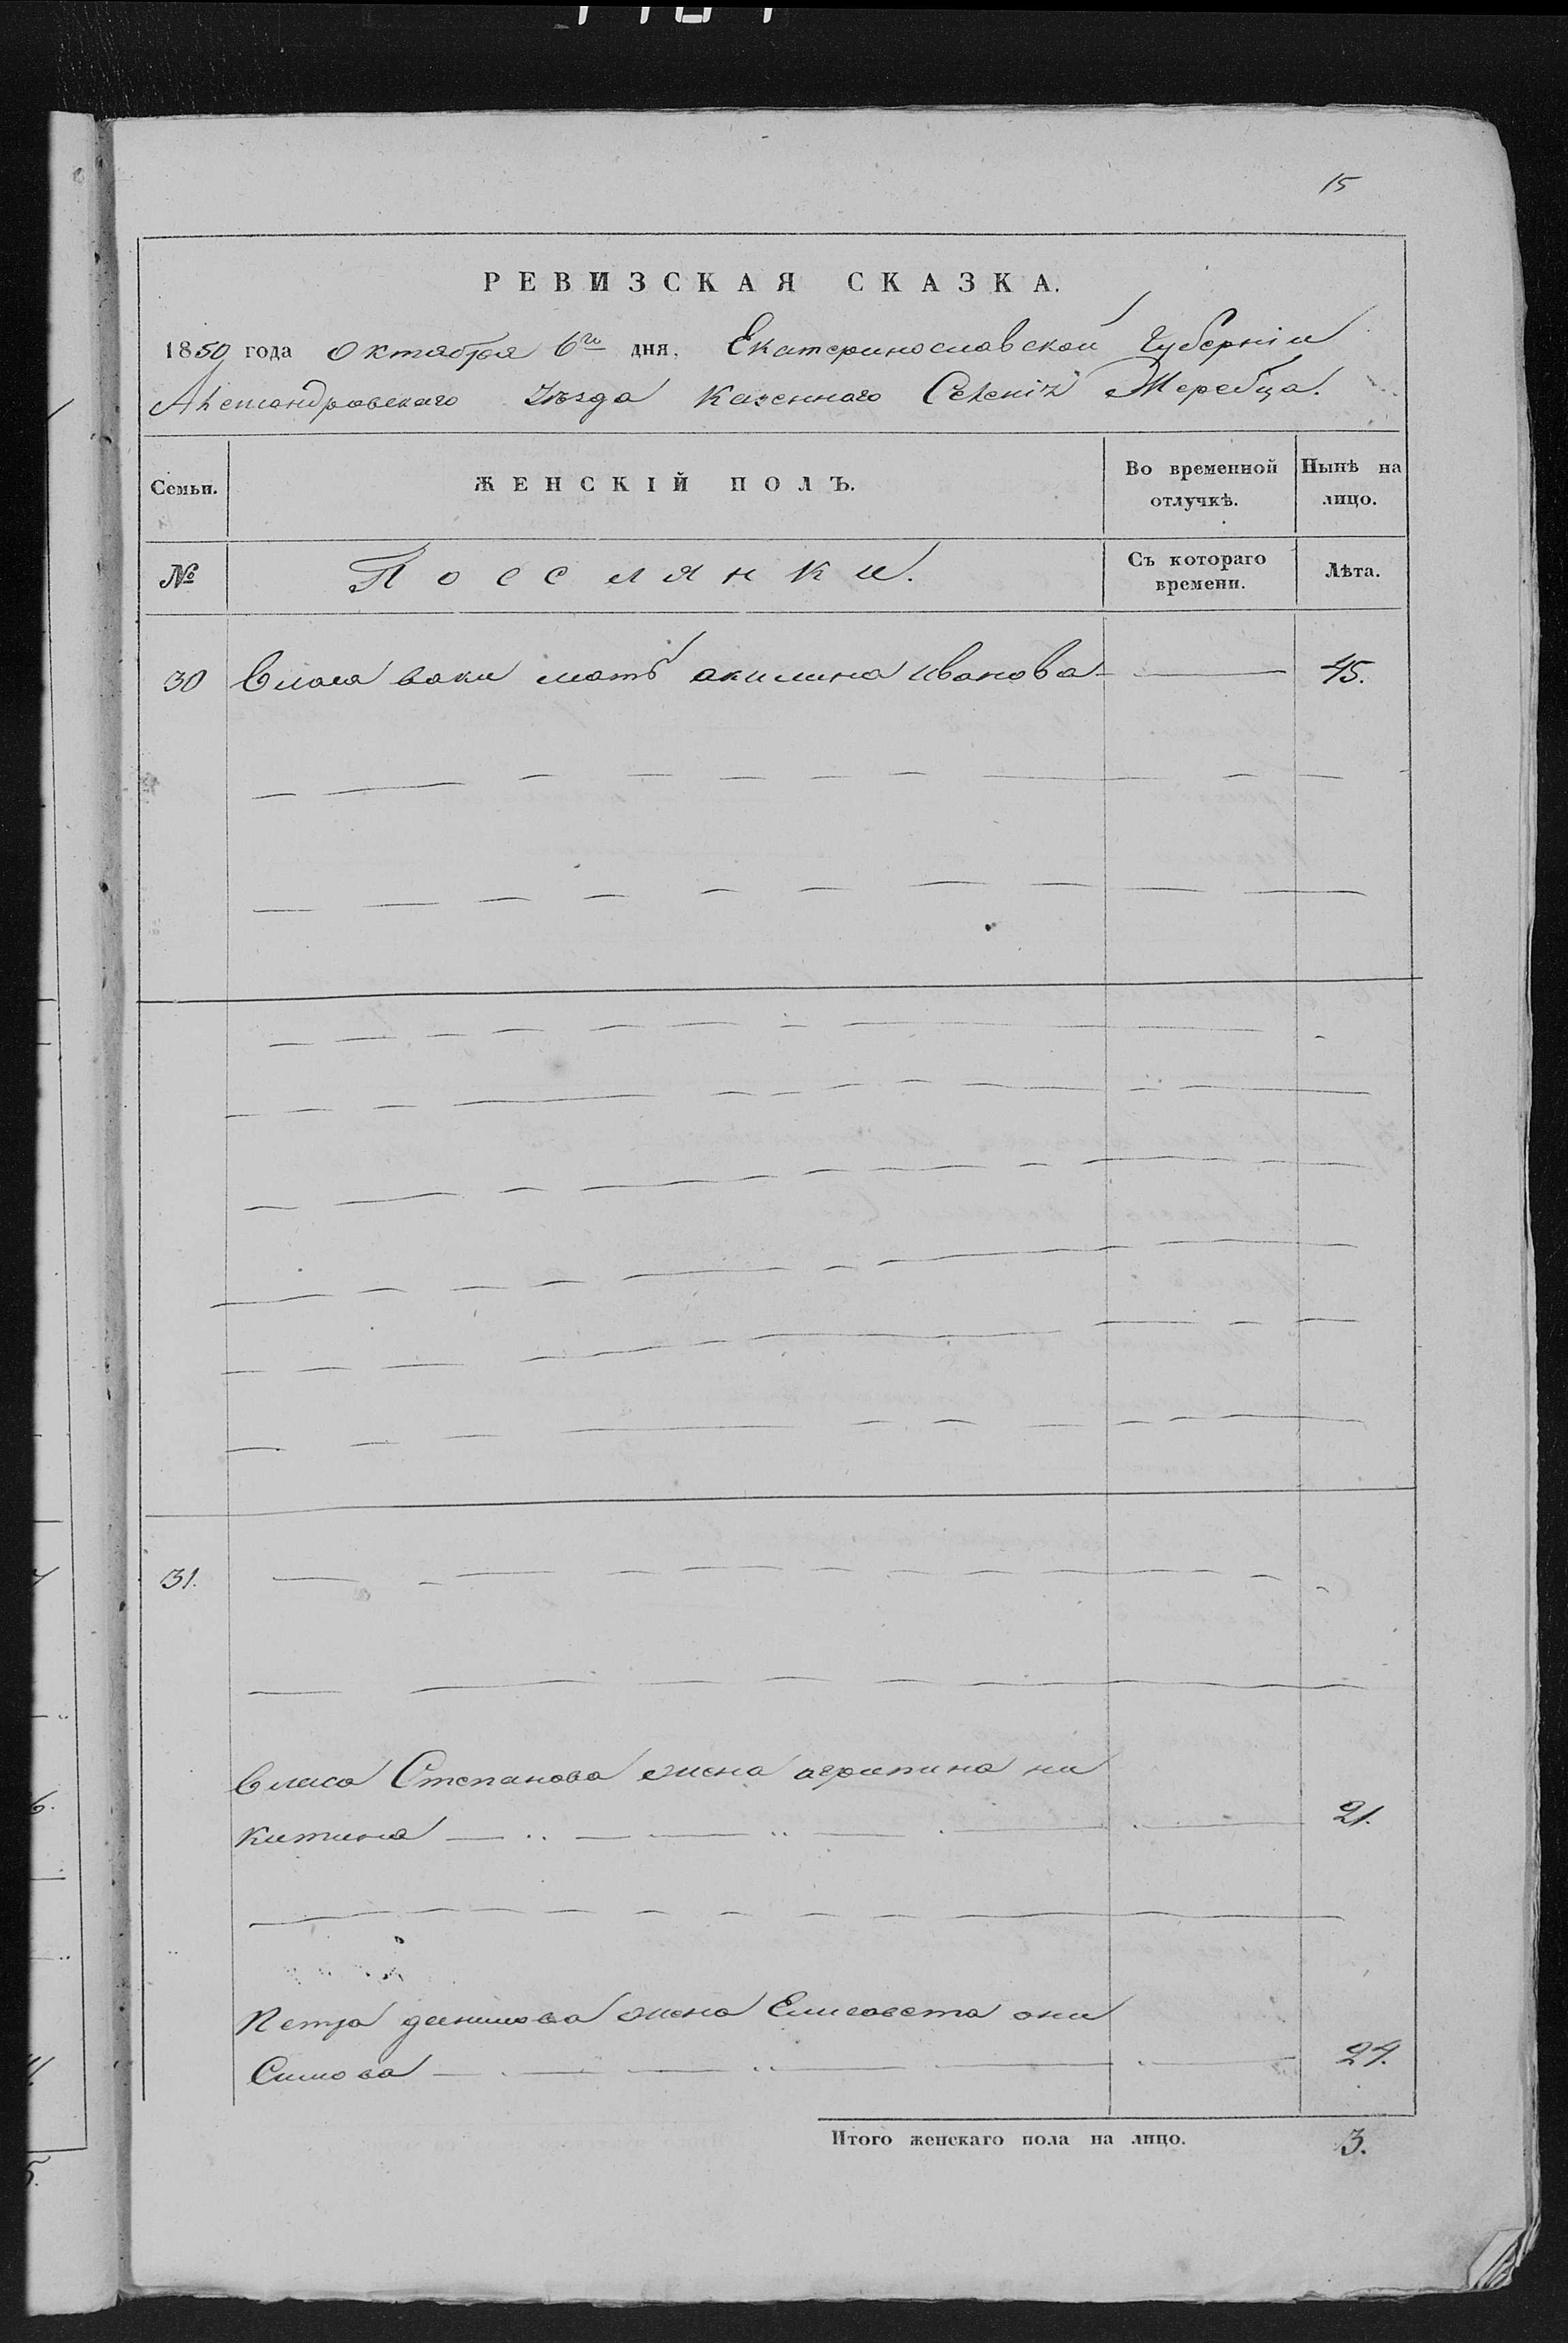 15
РЕВИЗСКАЯ СКАЗКА.
1850 года октября 6го дня, Екатеринославской Губерніи
Александровскаго Уѣзда Казеннаго Селенія Жеребца.
Семьи. ЖЕНСКІЙ ПОЛЪ. Во временной отлучкѣ. Нынѣ на лицо.
№ Посселянки. Съ котораго времени. Лѣта.
30 мать акилина иванова 45.
31.
Власа Степанова жена агрипина ни
китина 21.
Петра данилова жена Елисавета они
симова 24.
Итого женскаго пола на лицо. 3.